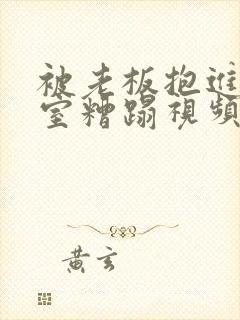 被老板抱进
室糟蹋視頻
黄玄